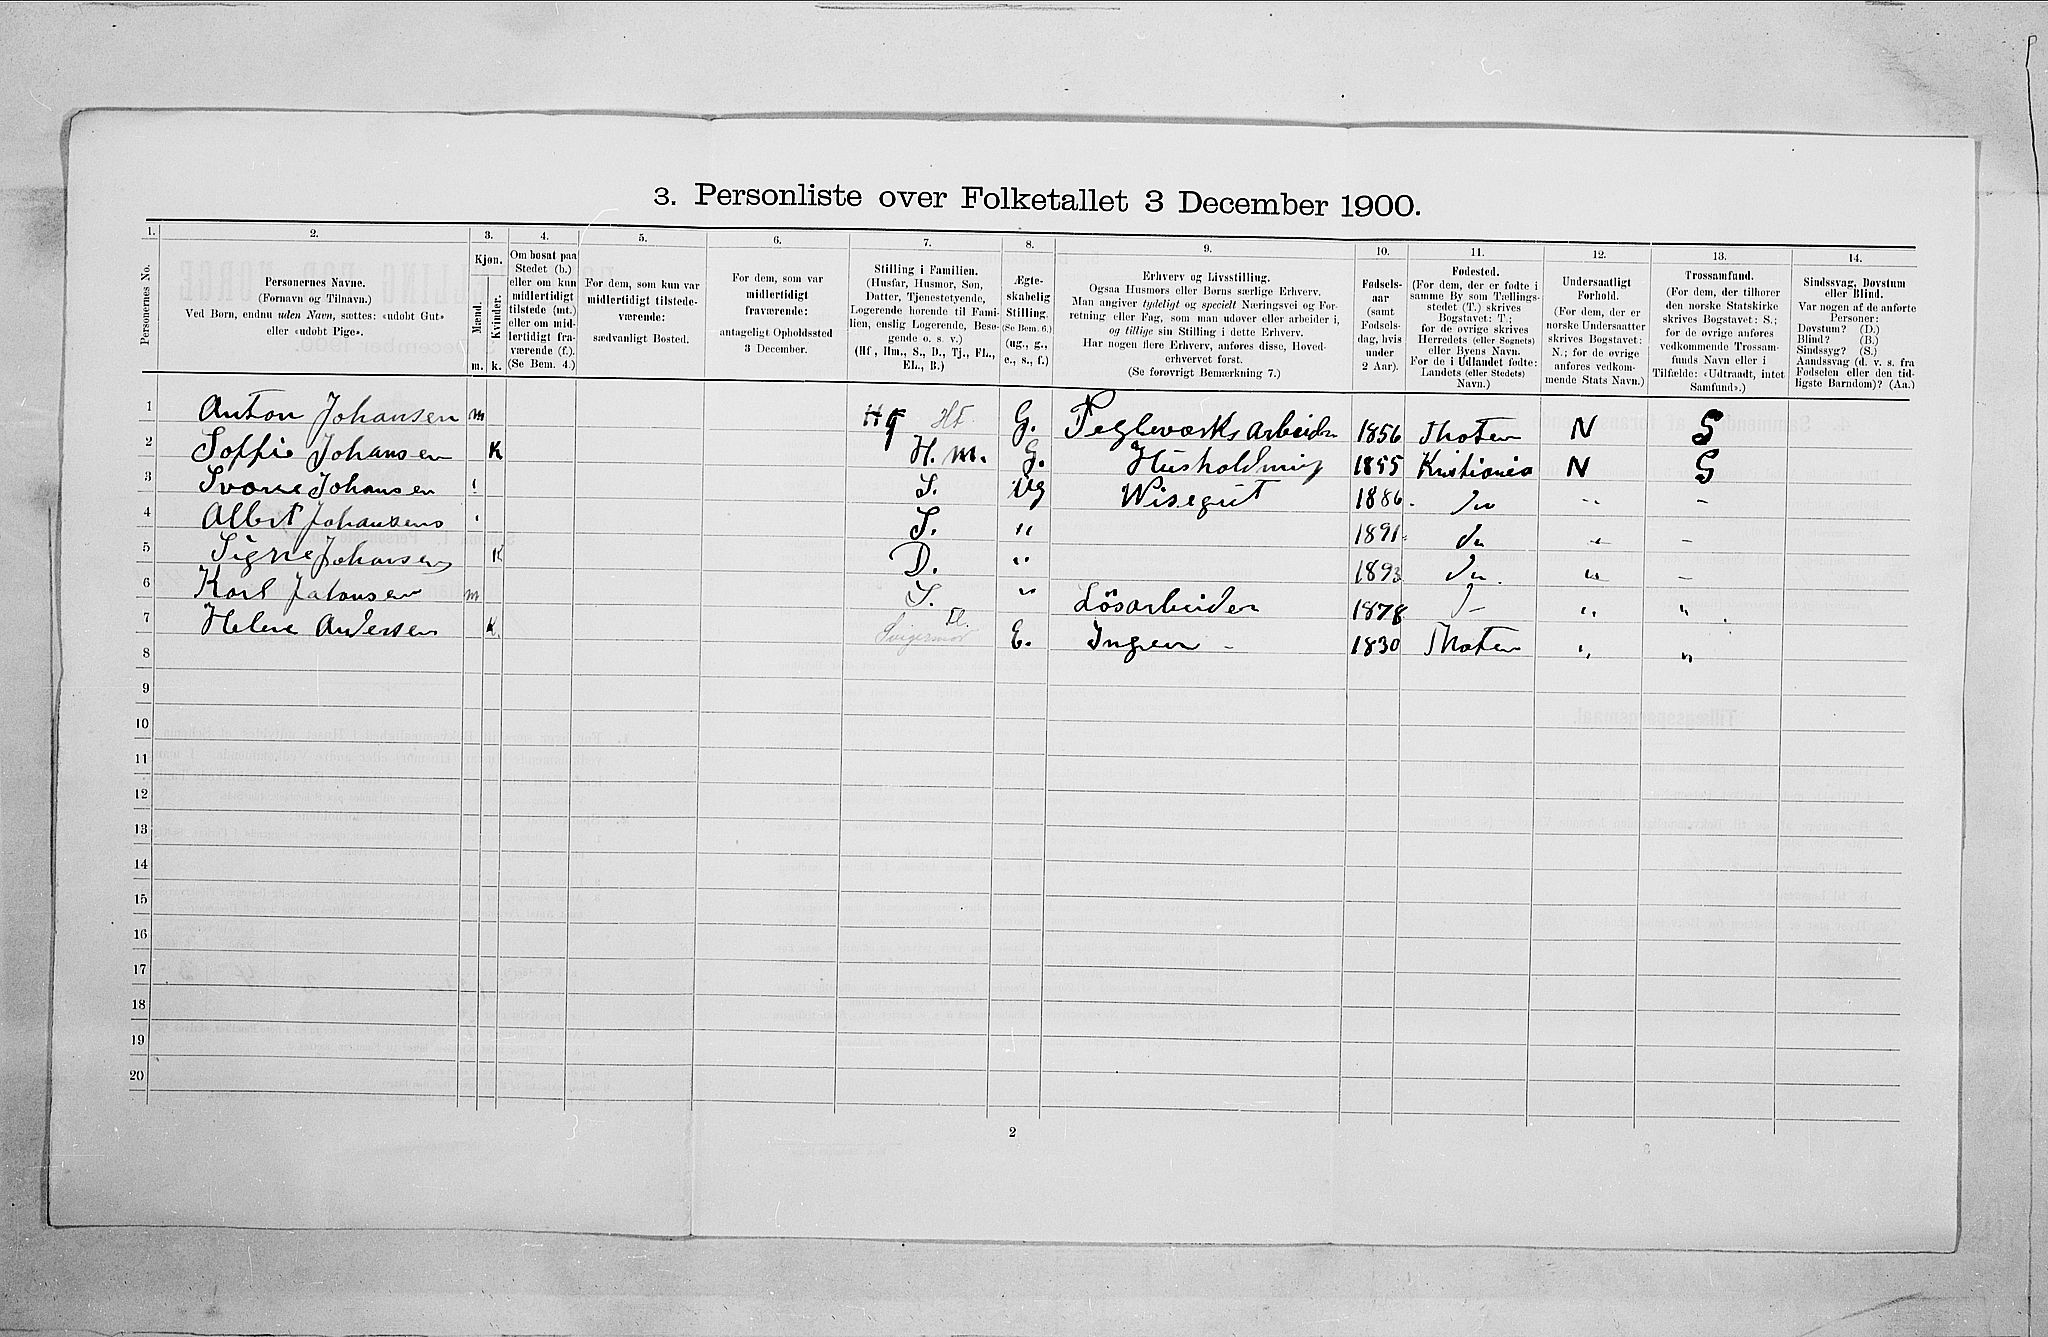 3. Personliste over Folketallet 3 December 1900.
1. 2. 3. 4. 5. 6. 7. 8. 9. 10. 11. 12. 13. 14.
Personernes No.
Personernes Navne.
(Fornavn og Tilnavn.)
Ved Børn, endnu uden Navn, sættes: «udøbt Gut»
eller «udøbt Pige».
Kjøn.
Mænd.
Kvinder.
m. k.
Om bosat paa
Stedet (b.)
eller om kun
midlertidigt
tilstede (mt.)
eller om mid-
lertidigt fra-
værende (f.).
(Se Bem. 4.)
For dem, som kun var
midlertidigt tilstede-
værende:
sædvanligt Bosted.
For dem, som var
midlertidigt
fraværende:
antageligt Opholdssted
3 December.
Stilling i Familien.
(Husfar, Husmor, Søn,
Datter, Tjenestetyende,
Logerende hørende til Fami-
lien, enslig Logerende, Besø-
gende o. s. v.)
(Hf., Hm., S., D., Tj., FL.,
EL., B.)
Ægte-
skabelig
Stilling.
(Se Bem. 6.)
(ug., g.,
e., s., f.)
Erhverv og Livsstilling.
Ogsaa Husmors eller Børns særlige Erhverv.
Man angiver tydeligt og specielt Næringsvei og For-
retning eller Fag, som man udøver eller arbeider i,
og tillige sin Stilling i dette Erhverv.
Har nogen flere Erhverv, anføres disse, Hoved-
erhvervet først.
(Se forøvrigt Bemærkning 7.)
Fødsels-
aar
(samt
Fødsels-
dag, hvis
under
2 Aar).
Fødested.
(For dem, der er fødte i
samme By som Tællings-
stedet (T.) skrives
Bogstavet: T.;
for de øvrige skrives
Herredets (eller Sognets)
eller Byens Navn.
For de i Udlandet fødte:
Landets (eller Stedets)
Navn.)
Undersaatligt
Forhold.
(For dem, der er
norske Undersaatter
skrives Bogstavet:
N.; for de øvrige
anføres vedkom-
mende Stats Navn.)
Trossamfund.
(For dem, der tilhører
den norske Statskirke
skrives Bogstavet: S.;
for de øvrige anføres
vedkommende Trossam-
funds Navn eller i
Tilfælde: «Udtraadt, intet
Samfund».)
Sindssvag, Døvstum
eller Blind.
Var nogen af de anførte
Personer:
Døvstum? (D.)
Blind? (B.)
Sindssyg? (S.)
Aandssvag (d. v. s. fra
Fødselen eller den tid-
ligste Barndom)? (Aa.)
1 Anton Johansen m Hf G. Teglværks arbeider 1856 Thoten N S
2 Soffie Johansen K H. m. G. Husholdning 1855 Kristiania N S
3 Sverre Johansen S. Ug Wisegut 1886 do " -
4 Albert Johansens S. " 1891 do " -
5 Signe Johansen K D. " 1893 do. " -
6 Karl Johansen m S. " Løsarbeider 1878 " "
7 Helene Andersen K. Svigermor Fl. E. Ingen - 1830 Thoten " "
8
9
10
11
12
13
14
15
16
17
18
19
20
2